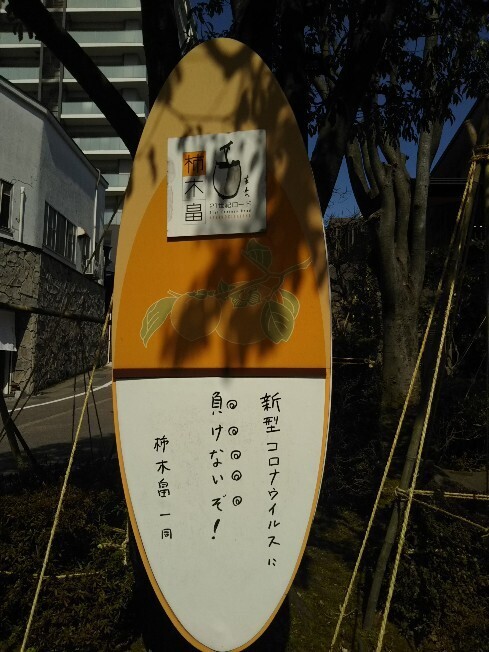 柿木畠
21世紀ロード
新型コロナウイルスに
負けないぞ！
柿木畠一同